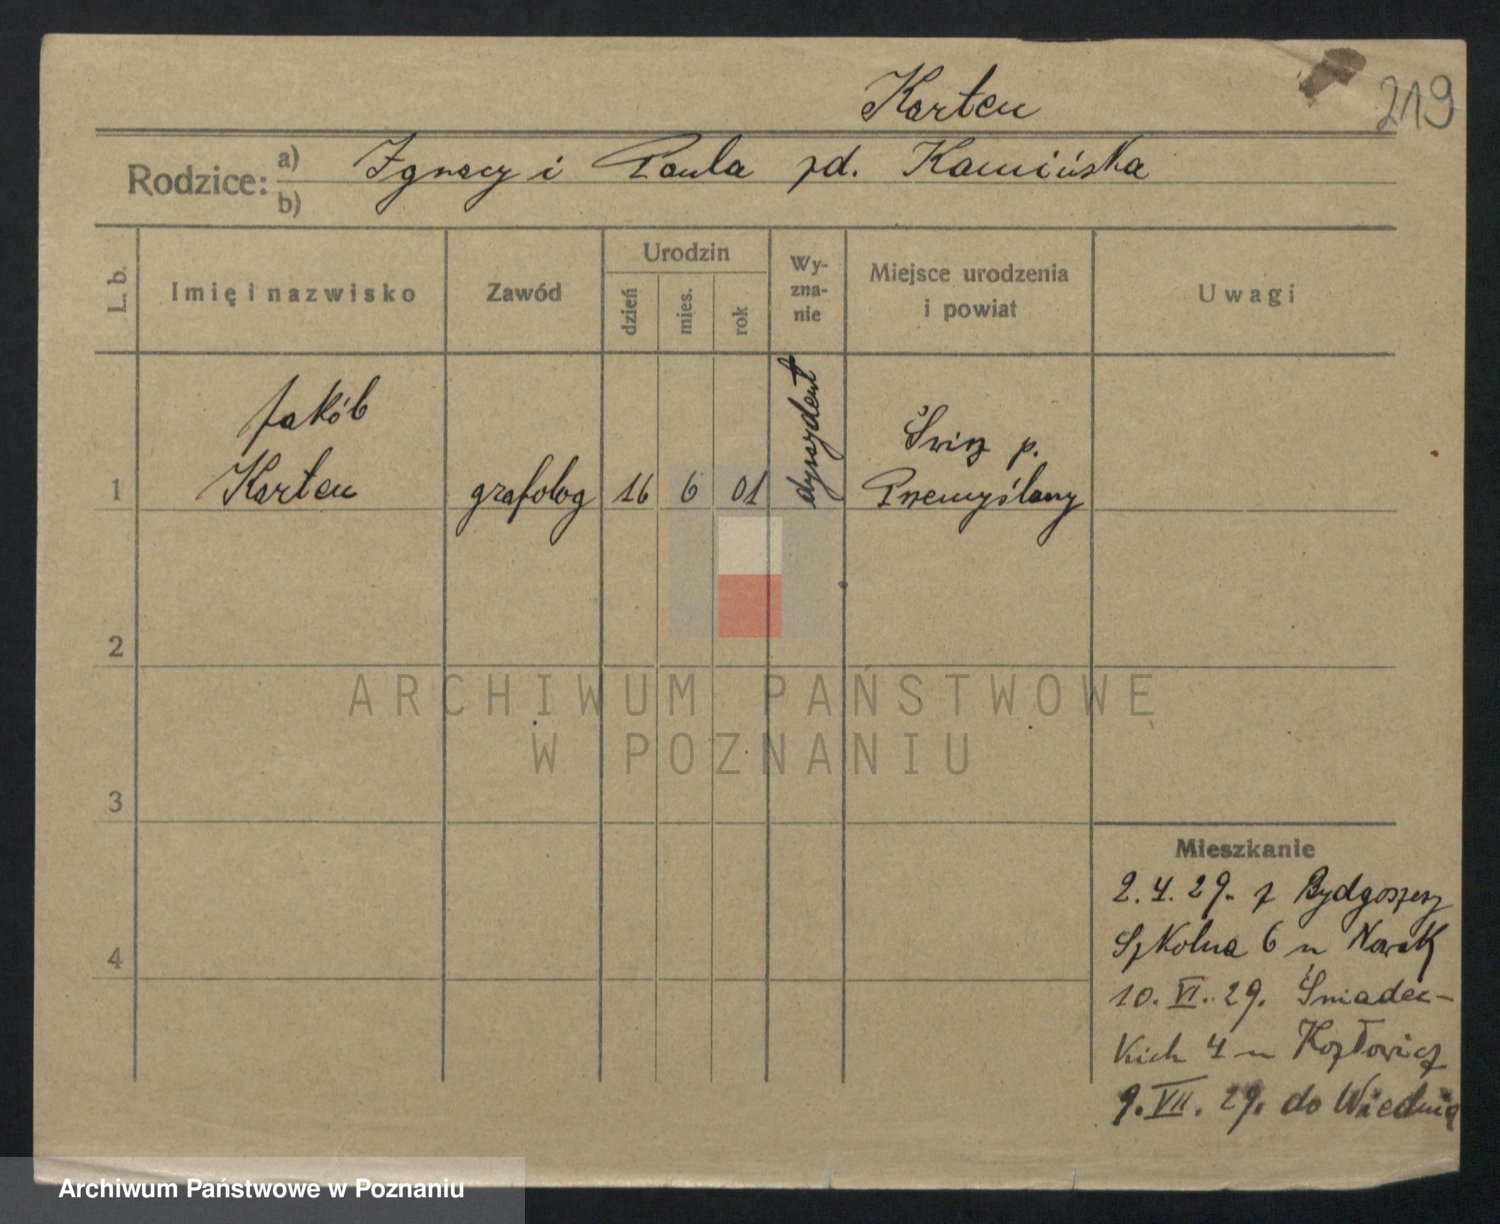 Karten
219
Rodzice: a) Ignacy i Paula zd. Kamińska
b)
L. b.
Imię i nazwisko
Zawód
Urodzin
dzień
mies.
rok
Wy-
zna-
nie
Miejsce urodzenia
i powiat
Uwagi
Jakób
1 Karten
grafolog
16
6
01
dyssydent
Świrz p.
Przemyślany
2
3
4
Mieszkanie
2.4.29. z Bydgoszczy
Szkolna 6 u Nowak
10.VI.29. Śniadec-
kich 4 u Kozłowicz
9.VII.29. do Wiednia
ARCHIWUM PAŃSTWOWE
W POZNANIU
Archiwum Państwowe w Poznaniu